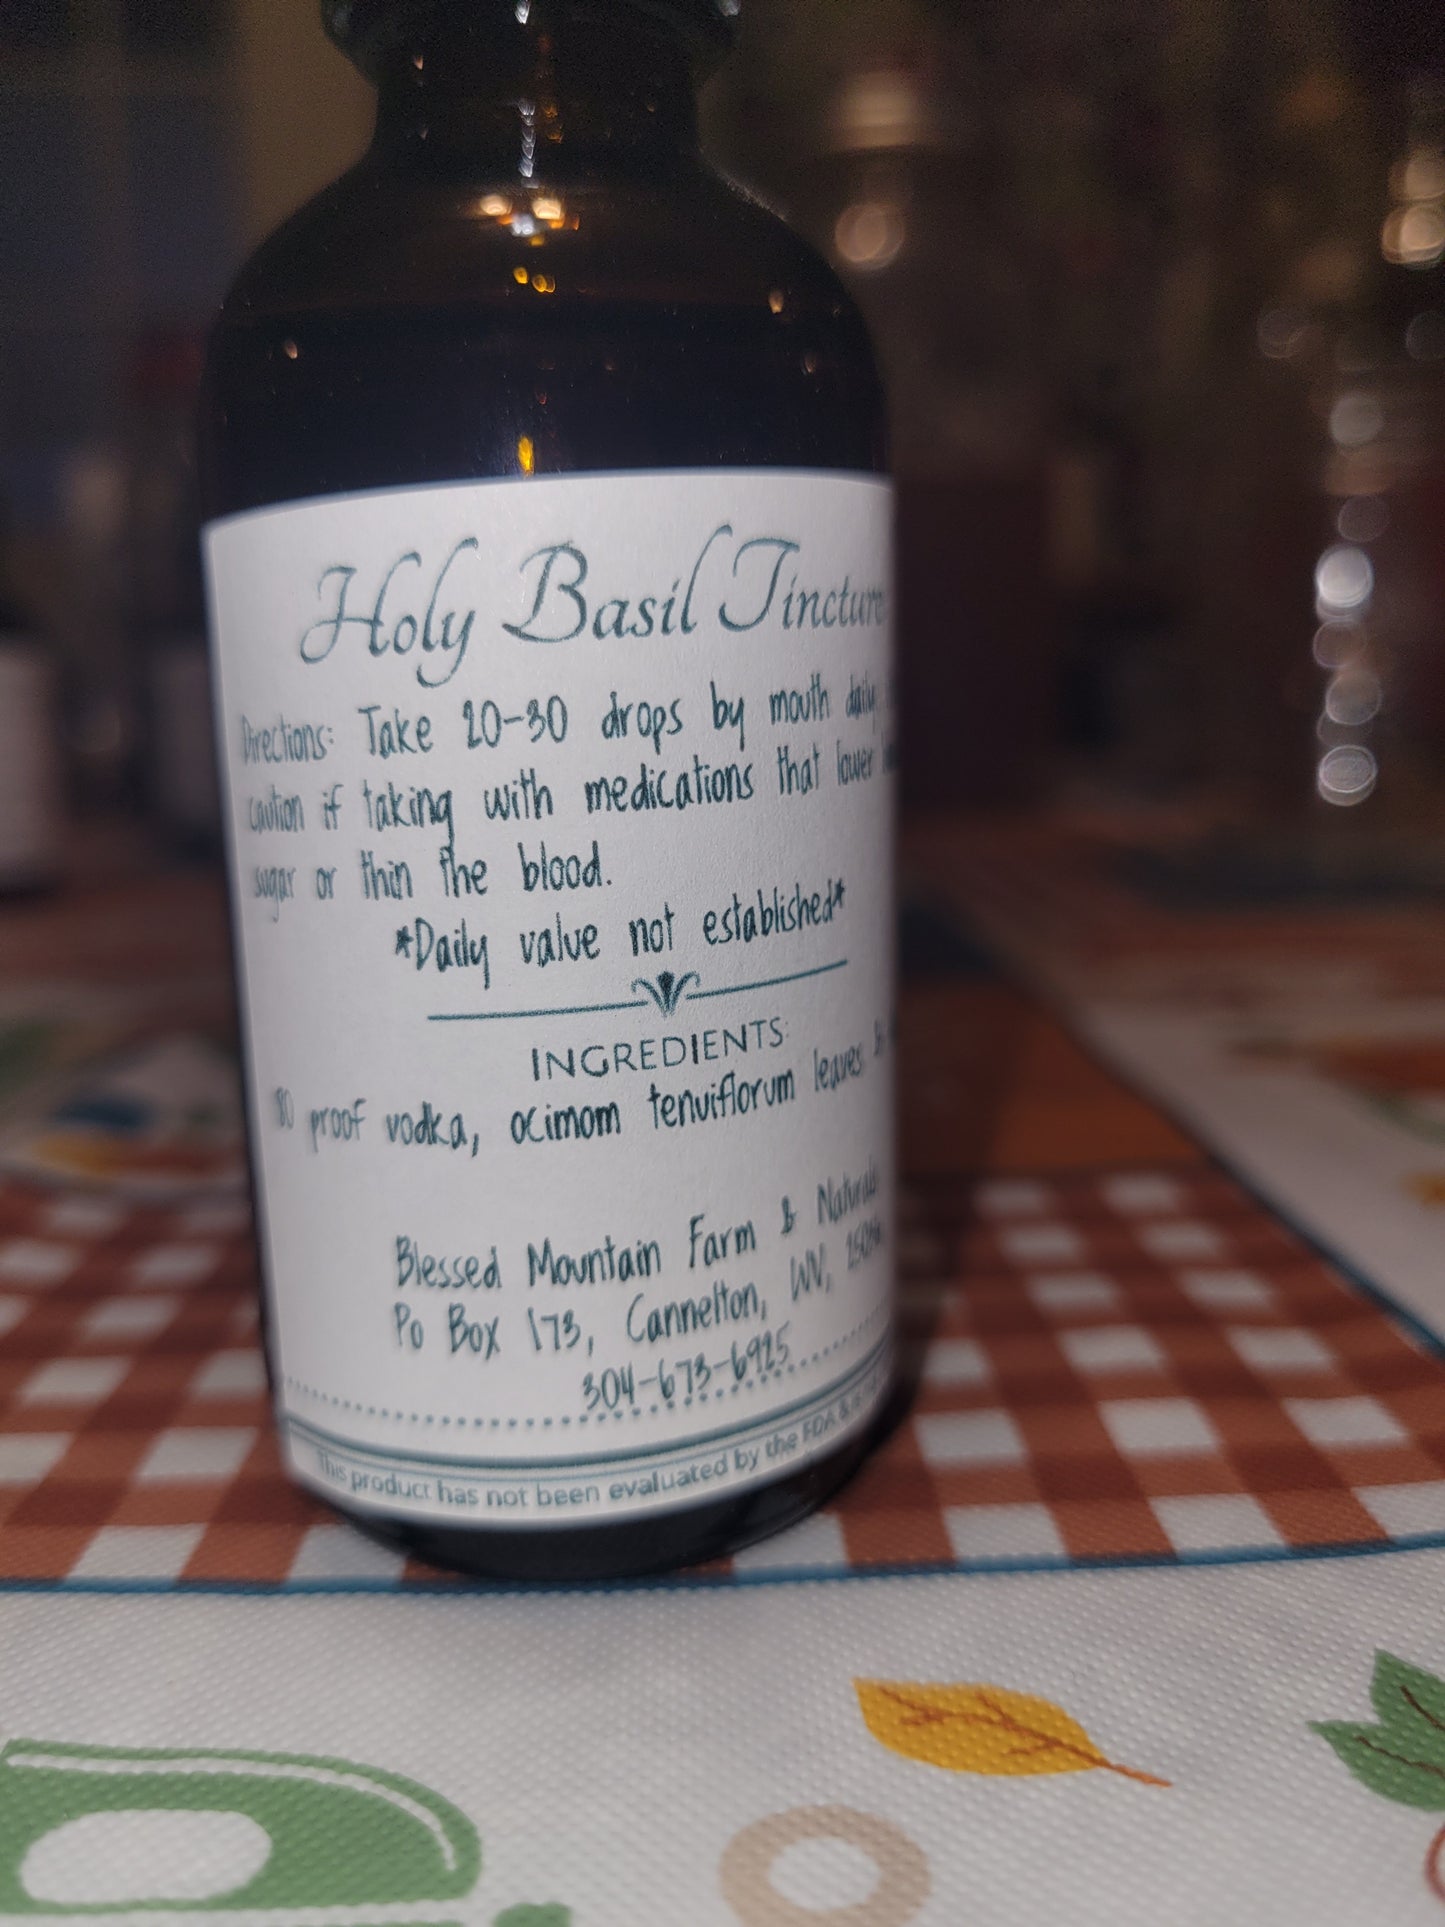 Holy Basil Tincture
Directions: Take 20-30 drops by mouth daily
caution if taking with medications that lower
sugar or thin the blood.
*Daily value not established*
INGREDIENTS:
80 proof vodka, ocimom tenuiflorum leaves
Blessed Mountain Farm & Naturals
Po Box 173, Cannelton, WV, 25036
304-673-6925
This product has not been evaluated by the FDA &